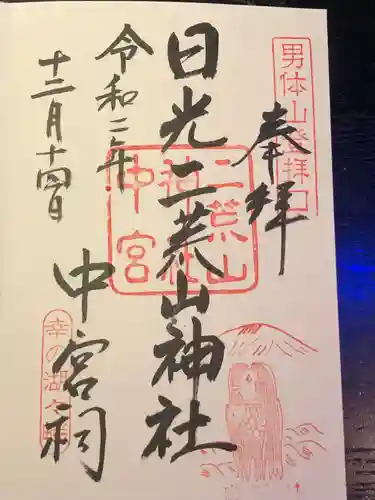 男体山登拝口
奉拝
日光二荒山神社
二荒山
神社
中宮
中宮祠
令和二年
十二月十四日